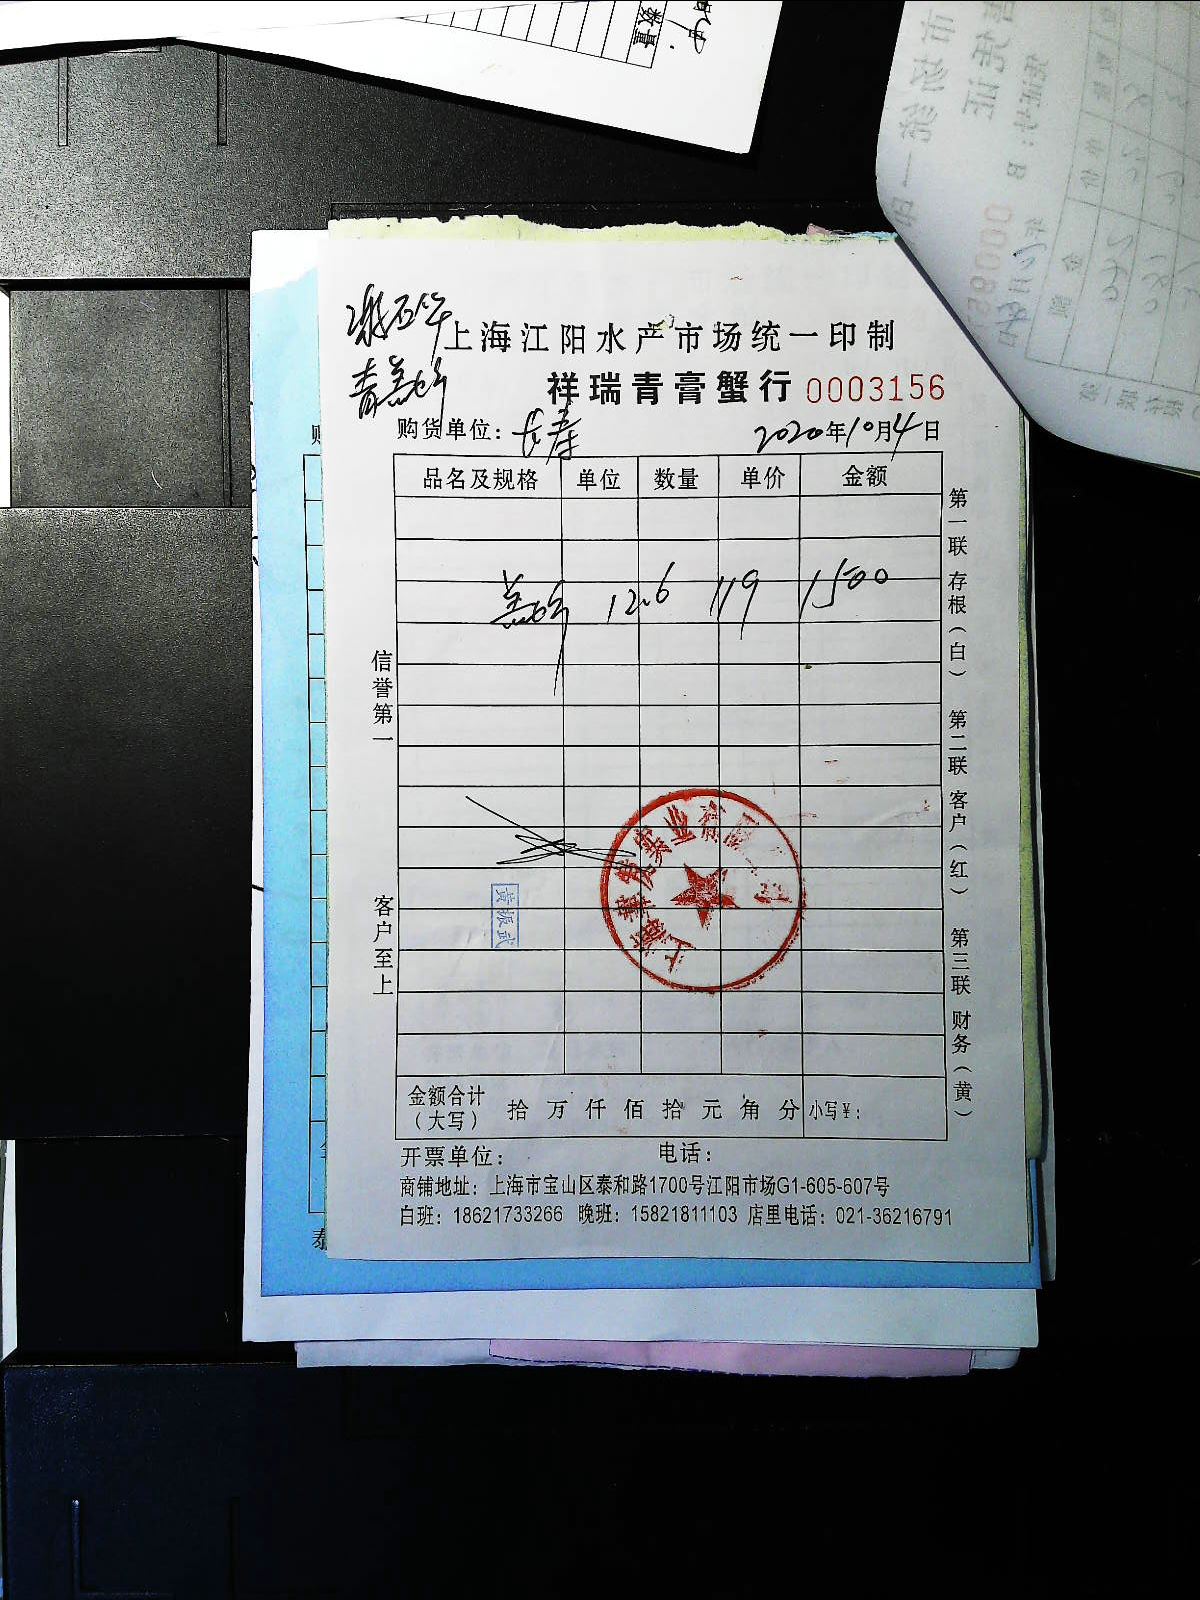 数量
上海江阳水产市场统一印制
祥瑞青膏蟹行 0003156
购货单位: 长寿 2020年10月4日
品名及规格 单位 数量 单价 金额
12.6 119 1500
信誉第一
客户至上
第一联 存根(白) 第二联 客户(红) 第三联 财务(黄)
上海 实业有限公司
黄振武
金额合计(大写) 拾 万 仟 佰 拾 元 角 分 小写¥:
开票单位: 电话:
商铺地址: 上海市宝山区泰和路1700号江阳市场G1-605-607号
白班: 18621733266 晚班: 15821811103 店里电话: 021-36216791